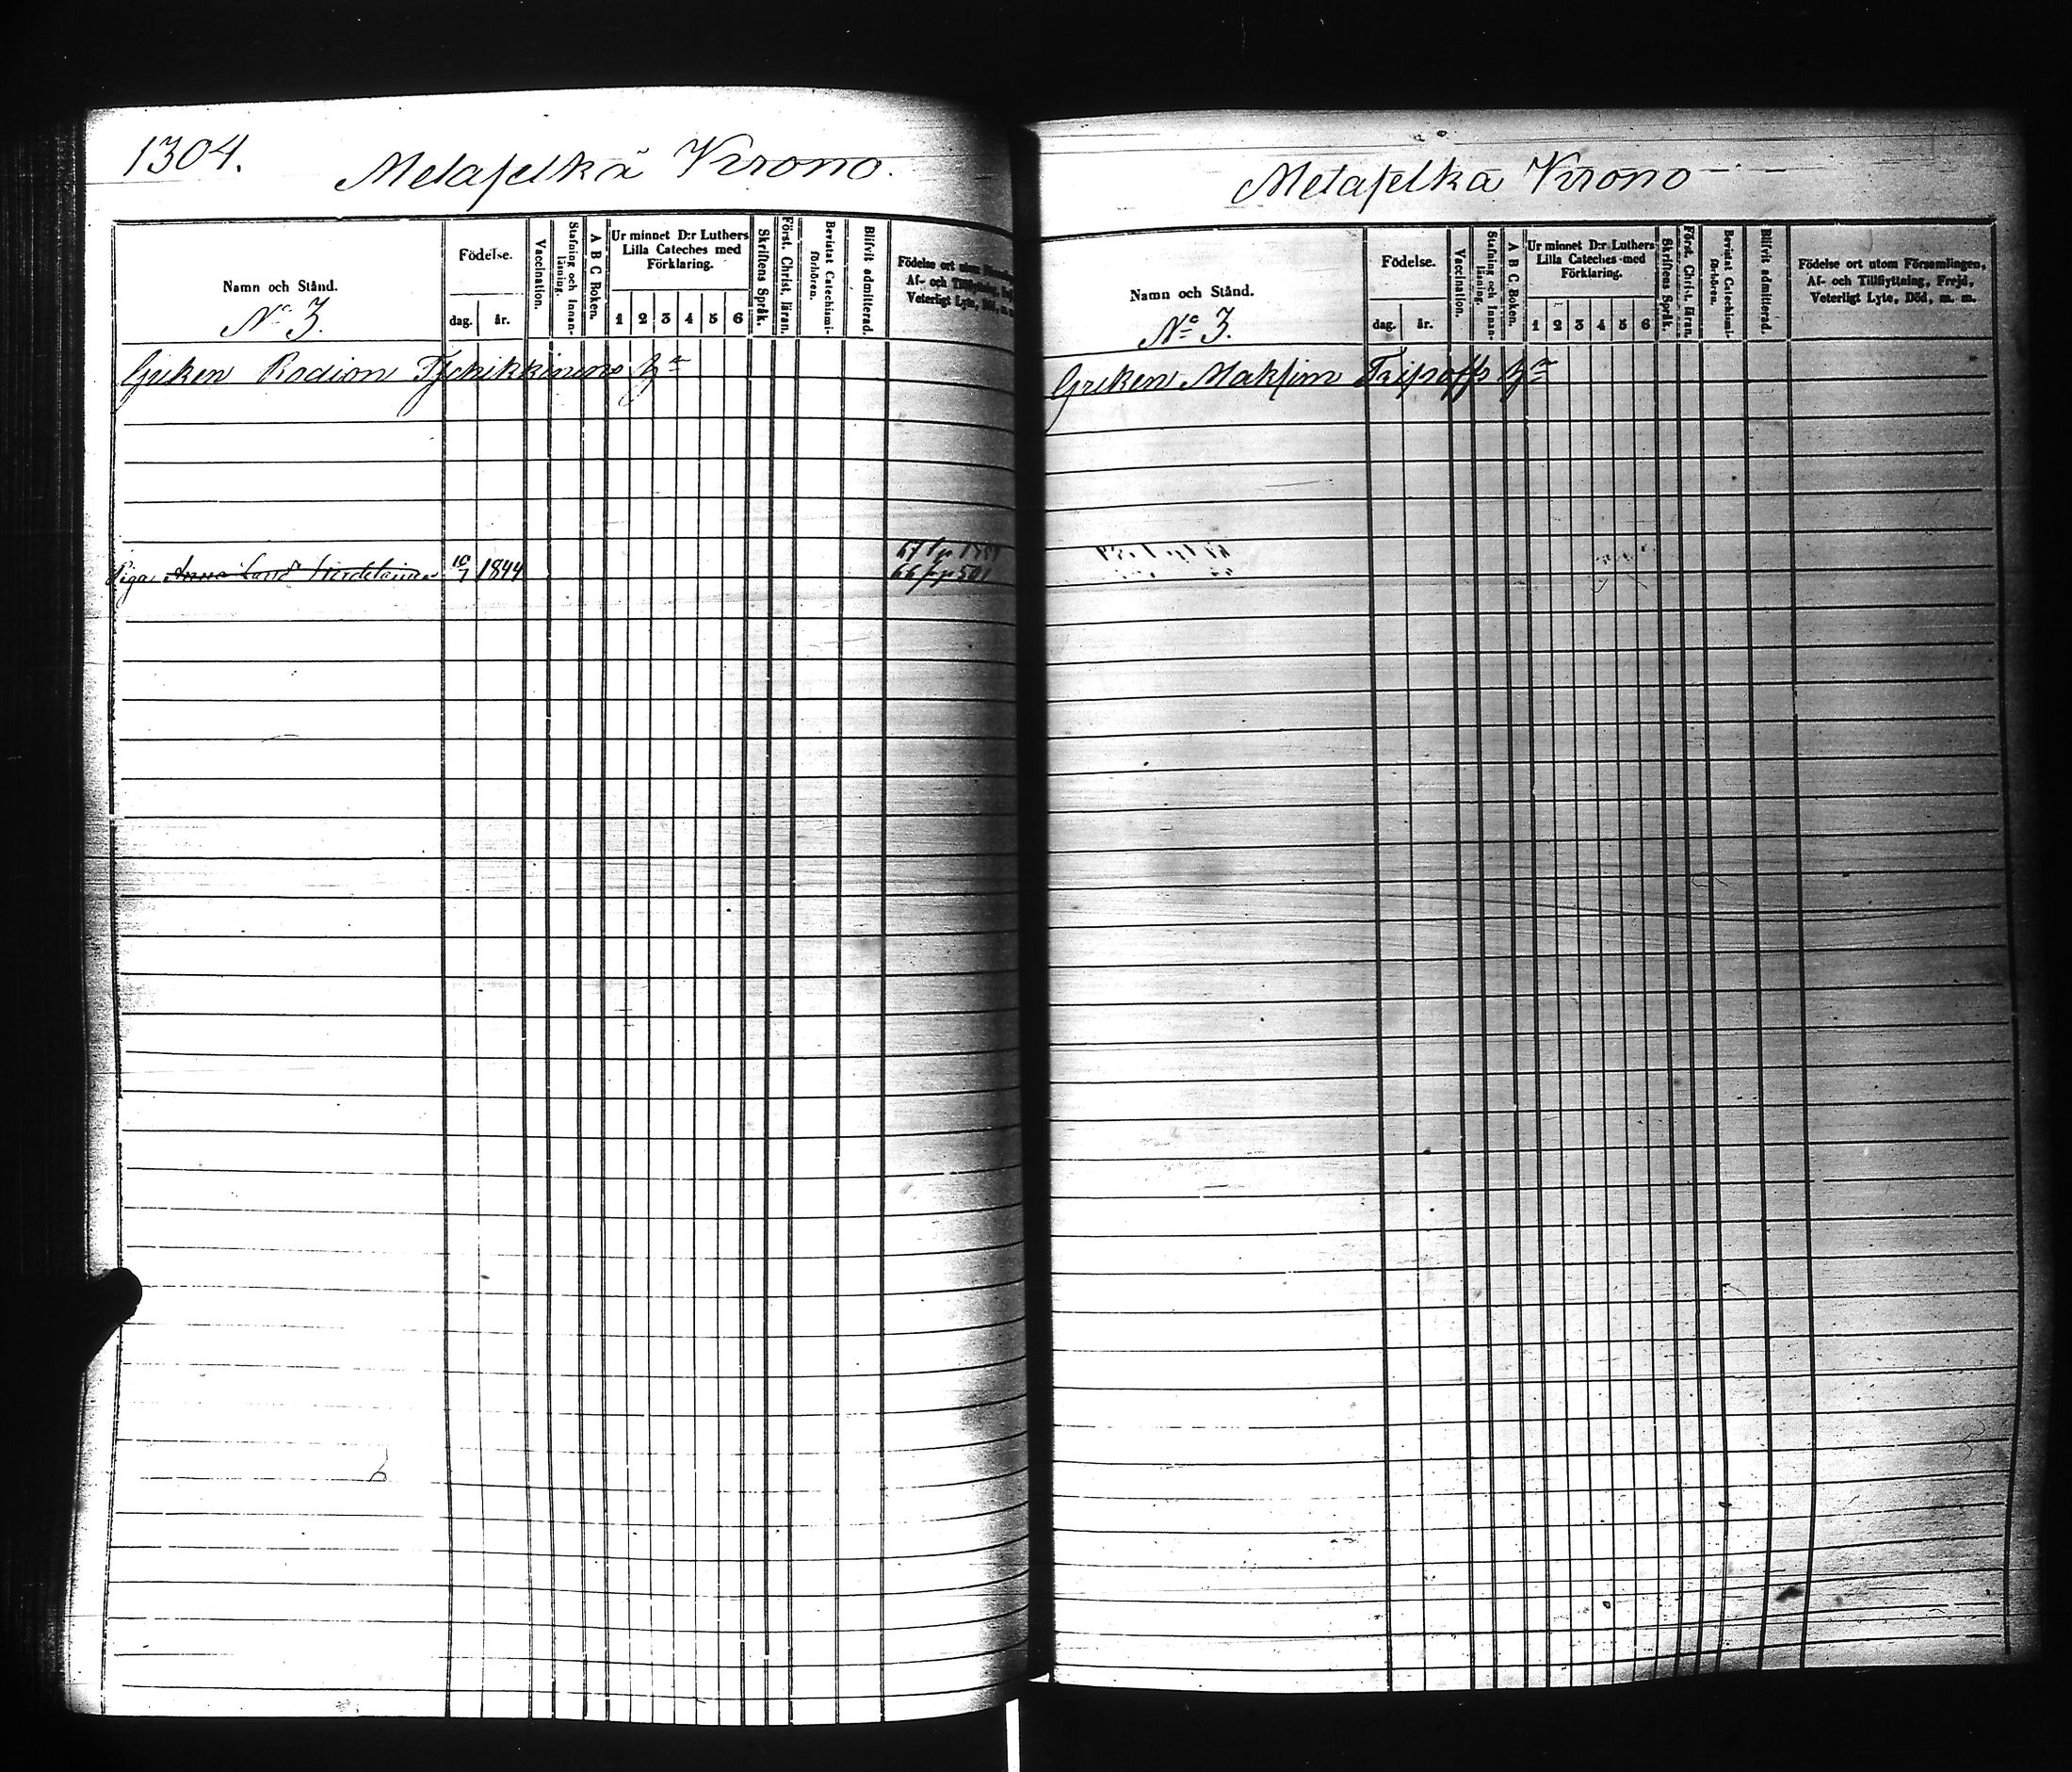 1304.
Metaselkä Krono.
Namn och Stånd.
No 3.
Födelse.
dag. år.
Vaccination.
Stafning och Innan-
läsning.
A B C Boken.
Ur minnet D:r Luthers
Lilla Cateches med
Förklaring.
1 2 3 4 5 6
Skriftens Språk.
Först. Christ. läran.
Bevistat Catechismi-
förhören.
Blifvit admitterad.
Födelse ort utom
Af- och Tillflyttning,
Veterligt Lyte,
Greken Radion
Piga Anna 10/7 1844
Metaselkä Krono
Namn och Stånd.
No 3.
Födelse.
dag. år.
Vaccination.
Stafning och Innan-
läsning.
A B C Boken.
Ur minnet D:r Luthers
Lilla Cateches med
Förklaring.
1 2 3 4 5 6
Skriftens Språk.
Först. Christ. läran.
Bevistat Catechismi-
förhören.
Blifvit admitterad.
Födelse ort utom Församlingen,
Af- och Tillflyttning, Frejd,
Veterligt Lyte, Död, m. m.
Greken Maksim Tripoffs